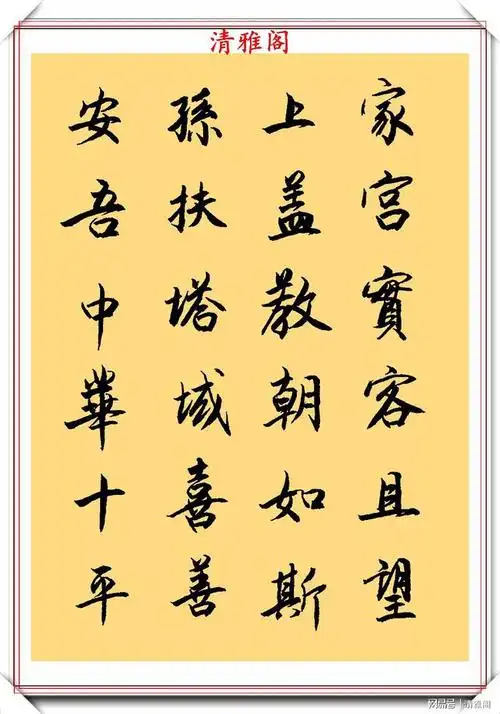 清雅阁
家宫實客且望
上盖教朝如斯
孫扶塔域喜善
安吾中華十平
网易号 | 清雅阁